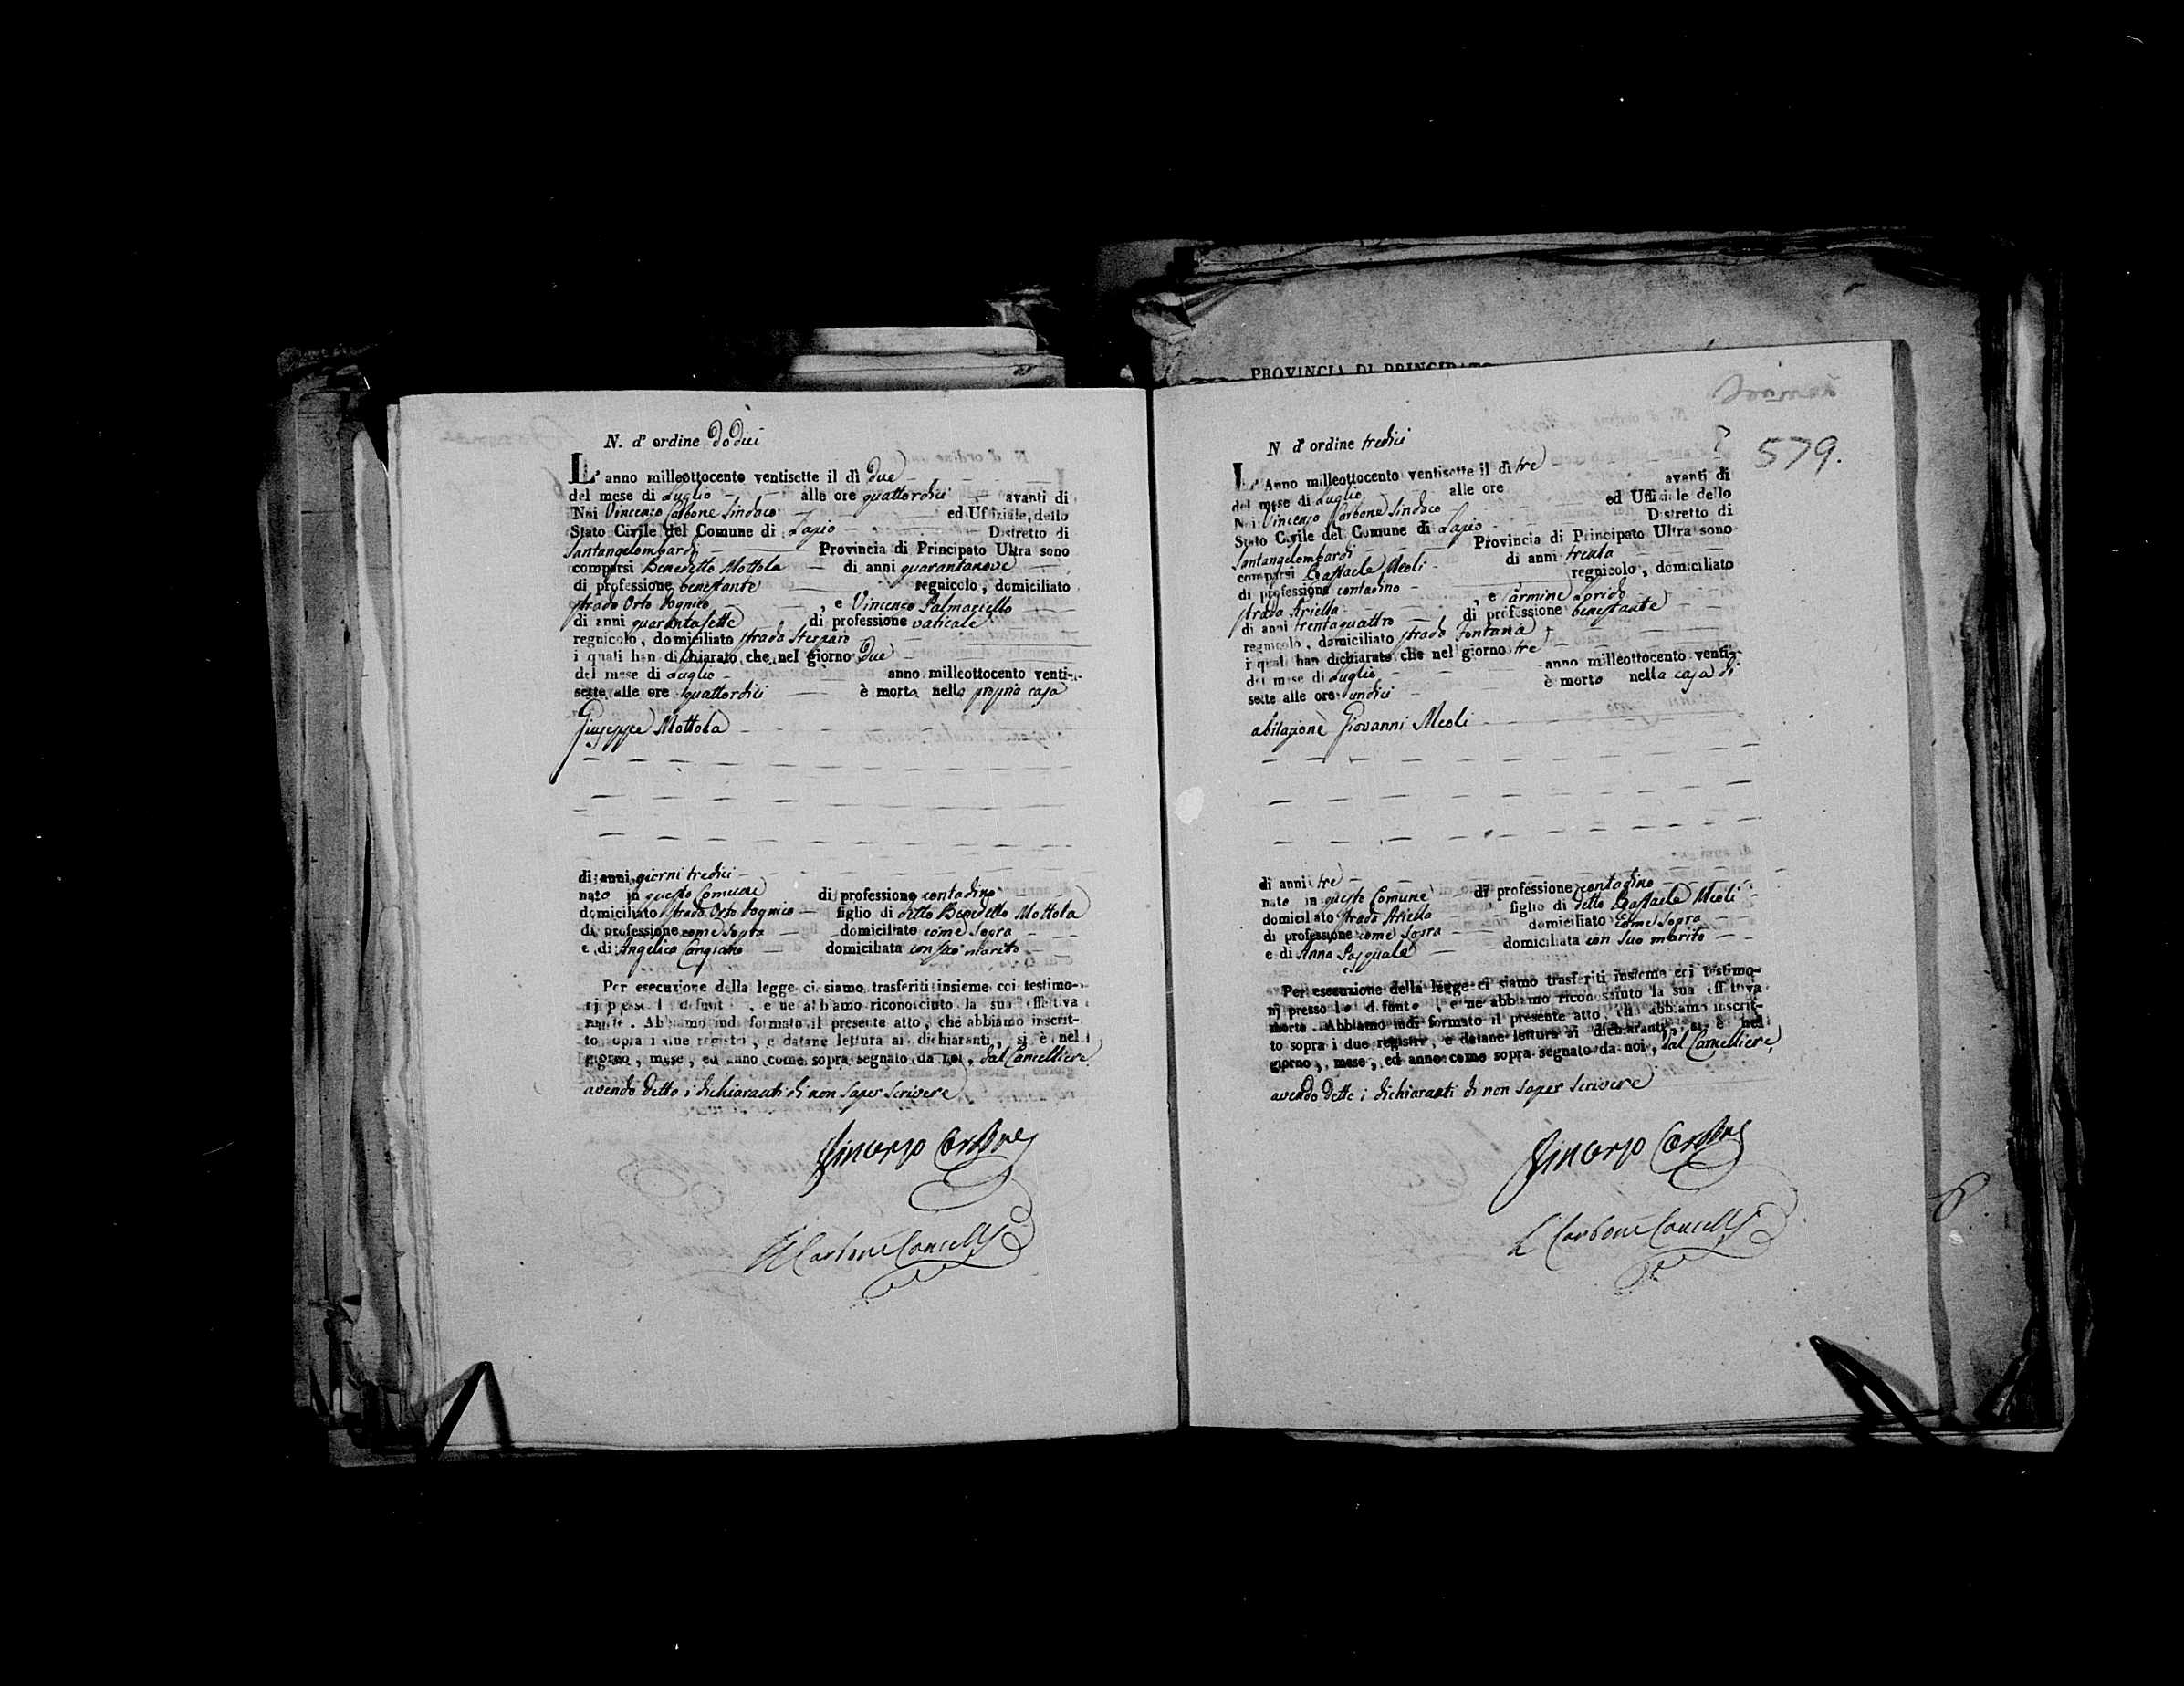 N. d' ordine dodici
L' anno milleottocento ventisette il dì due
del mese di Luglio alle ore quattordici avanti di
Noi Vincenzo Carbone Sindaco ed Uffiziale dello
Stato Civile del Comune di Lapio Distretto di
Santangelombardi Provincia di Principato Ultra sono
comparsi Benedetto Mottola di anni quarantanove
di professione benestante regnicolo, domiciliato
strada Orto , e Vincenzo Palmariello
di anni quarantasette di professione vaticale
regnicolo, domiciliato strada
i quali han dichiarato che nel giorno due
del mese di Luglio anno milleottocento venti-
sette alle ore quattordici è morta nella propria casa
Giuseppe Mottola
di anni giorni tredici
nato in questo Comune di professione contadino
domiciliato strada Orto figlio di detto Benedetto Mottola
di professione come sopra domiciliato come sopra
e di Angelica domiciliata con suo marito
Per esecuzione della legge ci siamo trasferiti insieme coi testimo-
nj presso l defunt , e ne abbiamo riconosciuto la sua effettiva
morte. Abbiamo indi formato il presente atto, che abbiamo inscrit-
to sopra i due registri, e datane lettura ai dichiaranti, si è nel
giorno, mese, ed anno come sopra segnato da noi, dal Cancelliere
avendo detto i dichiaranti di non saper scrivere
Vincenzo Carbone
Carbone Cancell
PROVINCIA DI PRINCIPATO
579.
N d' ordine tredici
L' Anno milleottocento ventisette il dì tre
del mese di Luglio alle ore avanti di
Noi Vincenzo Carbone Sindaco ed Uffiziale dello
Stato Civile del Comune di Lapio Distretto di
Santangelombardi Provincia di Principato Ultra sono
comparsi Raffaele Meoli di anni trenta
di professione contadino regnicolo, domiciliato
strada Ariella , e Carmine
di anni trentaquattro di professione benestante
regnicolo, domiciliato strada Fontana
i quali han dichiarato che nel giorno tre
del mese di Luglio anno milleottocento venti-
sette alle ore undici è morto nella casa di
abitazione Giovanni Meoli
di anni tre
nato in questo Comune di professione contadino
domiciliato strada Ariella figlio di detto Raffaele Meoli
di professione come sopra domiciliato come sopra
e di Anna Pasquale domiciliata con suo marito
Per esecuzione della legge ci siamo trasferiti insieme coi testimo-
nj presso lo defunto, e ne abbiamo riconosciuto la sua effettiva
morte. Abbiamo indi formato il presente atto, che abbiamo inscrit-
to sopra i due registri, e datane lettura ai dichiaranti, si è nel
giorno, mese, ed anno come sopra segnato da noi, dal Cancelliere
avendo detto i dichiaranti di non saper scrivere
Vincenzo Carbone
Carbone Cancell